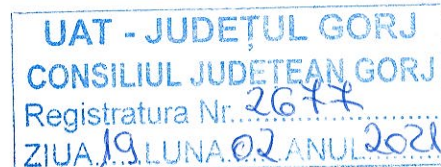 UAT - JUDEȚUL GORJ
CONSILIUL JUDETEAN GORJ
Registratura Nr. 2677
ZIUA 19 LUNA 02 ANUL 2021